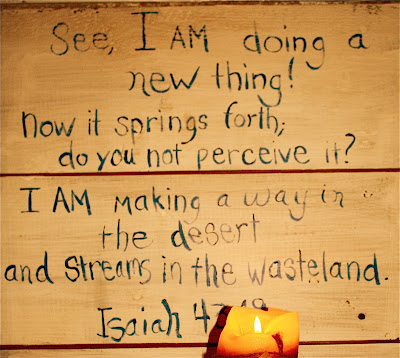 See, I AM doing a
new thing!
Now it springs forth;
do you not perceive it?
I AM making a way in
the desert
and Streams in the wasteland.
Isaiah